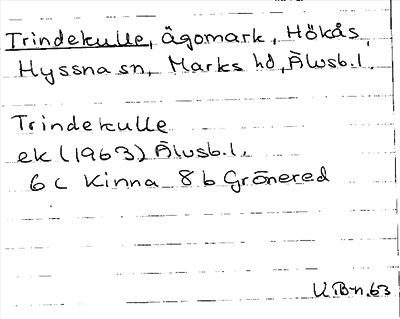 Trindekulle, ägomark, Hökås,
Hyssna sn, Marks hd, Älvsb.l.
Trindekulle
ek (1963) Älvsb.l.
6 c Kinna 8 b Grönered
U.Bn.63